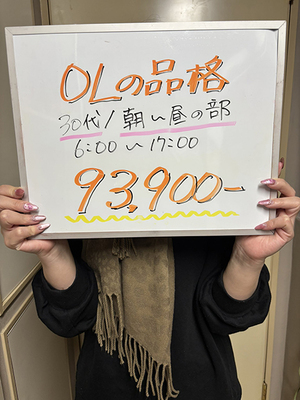 OLの品格
30代/朝〜昼の部
6:00〜17:00
93,900-